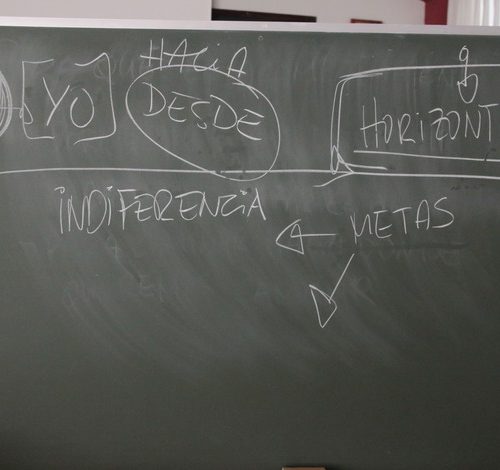 HACIA
YO DESDE HORIZONT
INDIFERENCIA
METAS